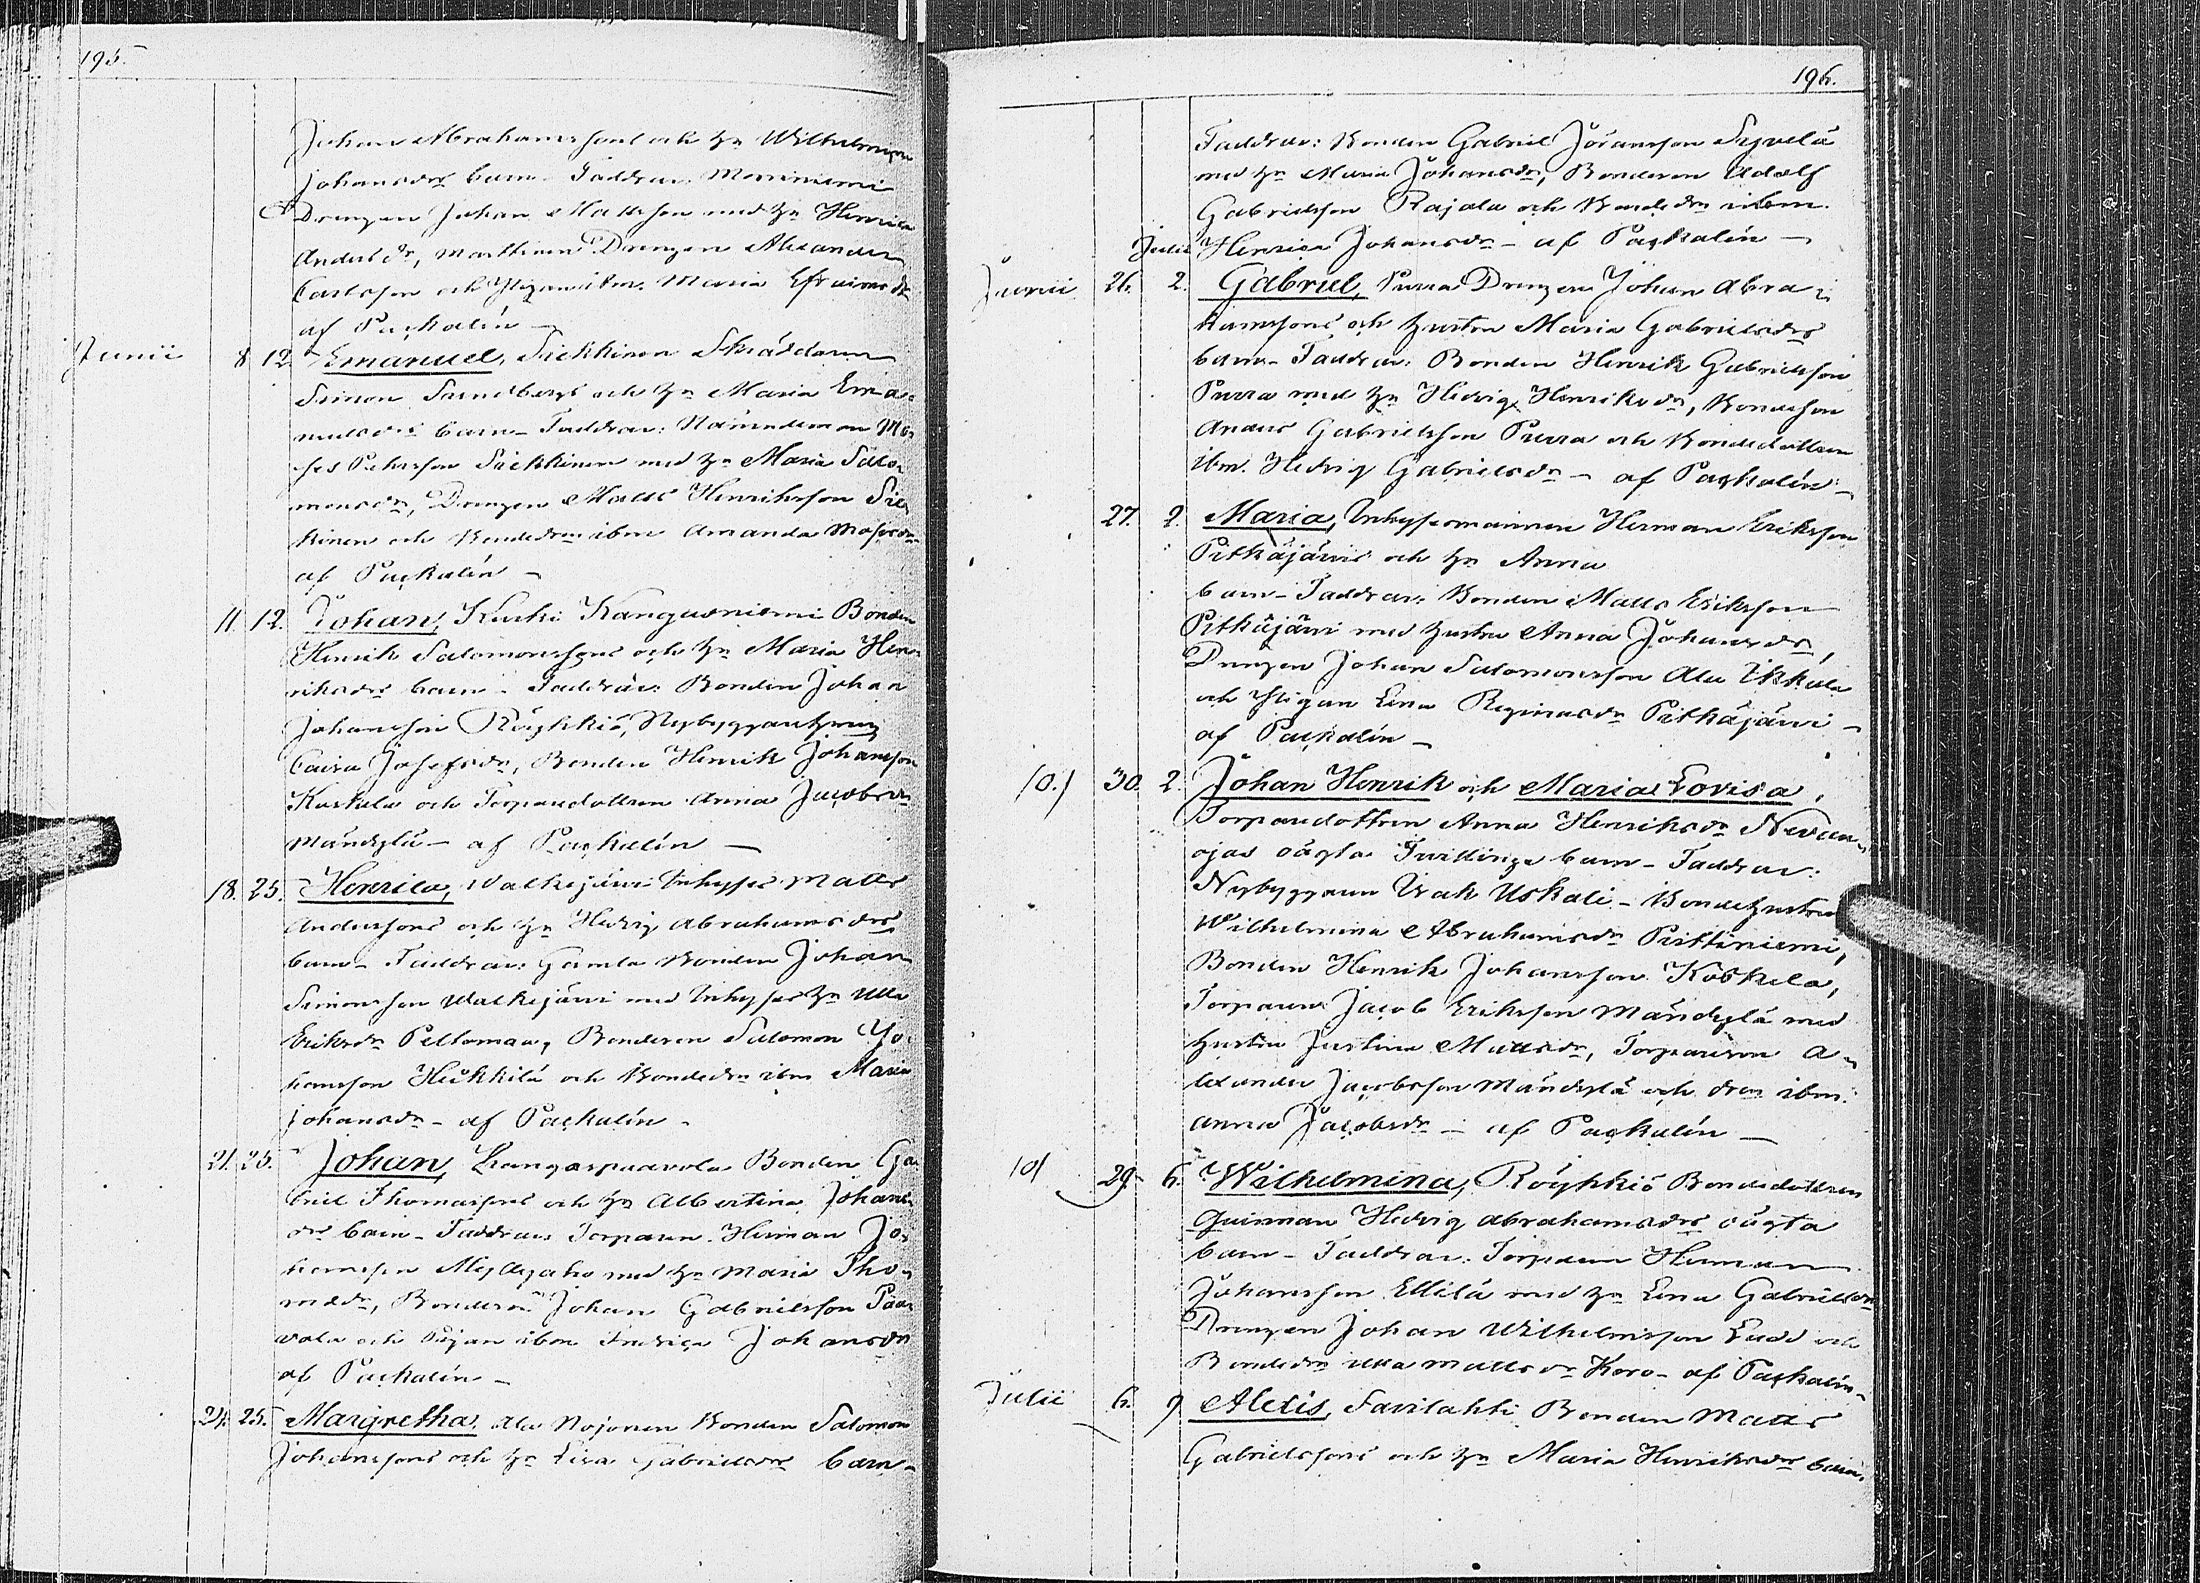 195.
Johan Abrahamssons och h:u Wilhelmina
Johansdrs barn. Faddrar: Monniemi
Drengen Johan Mattsson med h:u Henrica
Andersdr, Marttinen Drengen Alexander
Carlsson och Pigan ibm Maria Efraimsdr
af Paskalin —
Junii 8. 12. Emanuel, Siekkinen Skräddaren
Simon Sundbergs och h:u Maria Ema-
nuelsdrs barn - Faddrar: Nämndeman Mo-
ses Petersson Siekkinen med h:u Maria Salo-
monsdr, Drengen Matts Henriksson Siek-
kinen och Bondedrn ibm Amanda Mosesdr
af Paskalin —
11. 12. Johan, Kurki Kangasniemi Bonden
Henrik Salomonssons och h:u Maria Hen-
riksdrs barn - Faddrar: Bonden Johan
Johansson Röyhkiö, Nybyggarehustrun
Caisa Josefsdr, Bonden Henrik Johansson
Koskela och Torparedottren Anna Jacobsdr
Mändylä - af Paskalin —
18. 25. Henrica, Walkejärvi Inhyses Matts
Anderssons och h:u Hedvig Abrahamsdrs
barn - Faddrar: Gamla Bonden Johan
Simonsson Walkejärvi med Inhyses h:u Ulla
Eriksdr Peltomaa, Bondeson Salomon Jo-
hansson Heikkilä och Bondedrn ibm Maria
Johansdr - af Paskalin -
21. 25. Johan, Kangaspaavola Bonden Ga-
briel Thomassons och h:u Albertina Johans-
drs barn - Faddrar: Torparen Herman Jo-
hansson Myllyaho med h:u Maria Tho-
masdr, Bondeson Johan Gabrielsson Paa-
vola och Pigan ibm Fredrica Johansdr
af Paskalin —
24. 25. Margretha, Ala Nojonen Bonden Salomon
Johanssons och h:u Lisa Gabrielsdrs barn -
196.
Faddrar: Bonden Gabriel Göransson Sipilä
med h:u Maria Johansdr, Bondeson Adolf
Gabrielsson Rajala och Bondedrn ibm.
Julii Henrica Johansdr - af Paskalin —
Junii 26. 2. Gabriel, Purra Drengen Johan Abra-
hamssons och hustru Maria Gabrielsdrs
barn - Faddrar: Bonden Henrik Gabrielsson
Purra med h:u Hedvig Henriksdr, Bondeson
Anders Gabrielsson Purra och Bondedottren
ibm. Hedvig Gabrielsdr - af Paskalin —
27. 2. Maria, Inhysesmannen Herman Eriksson
Pitkäjärvis och h:u Anna
barn - Faddrar: Bonden Matts Eriksson
Pitkäjärvi med hustru Anna Johansdr,
Drengen Johan Salomonsson Ala Ikkala
och Pigan Lena Reginasdr Pitkäjärvi -
af Paskalin —
10.) 30. 2. Johan Henrik och Maria Lovisa,
Torparedottren Anna Henriksdr Nevan-
ojas oägta Twillinge barn - Faddrar:
Nybyggaren Isak Uskali - Bondehustrun
Wilhelmina Abrahamsdr Peittiniemi,
Bonden Henrik Johansson Koskela,
Torparen Jacob Eriksson Mändylä med
hustru Justina Mattsdr, Torpareson A-
lexander Jacobsson Mändylä och drn ibm.
Anna Jacobsdr - af Paskalin —
10) 29. 6. Wilhelmina, Röyhkiö Bondedottren
Qvinnan Hedvig Abrahamsdrs oägta
barn - Faddrar: Torparen Herman
Johansson Ellilä med h:u Lena Gabrielsdr
Drengen Johan Wilhelmsson Ladd och
Bondedrn Ulla Mattsdr Koro - af Paskalin -
Julii 6. 9. Alexis, Savilahti Bonden Matts
Gabrielssons och h:u Maria Henriksdrs barn.